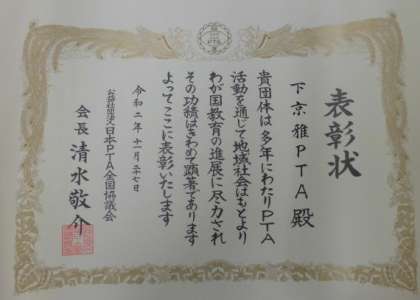 表彰状
下京雅PTA殿
貴団体は多年にわたりPTA
活動を通じて地域社会はもとより
わが国教育の進展に尽力され
その功績はきわめて顕著であります
よってここに表彰いたします
令和二年十一月二十七日
公益社団法人日本PTA全国協議会
会長 清水敬介